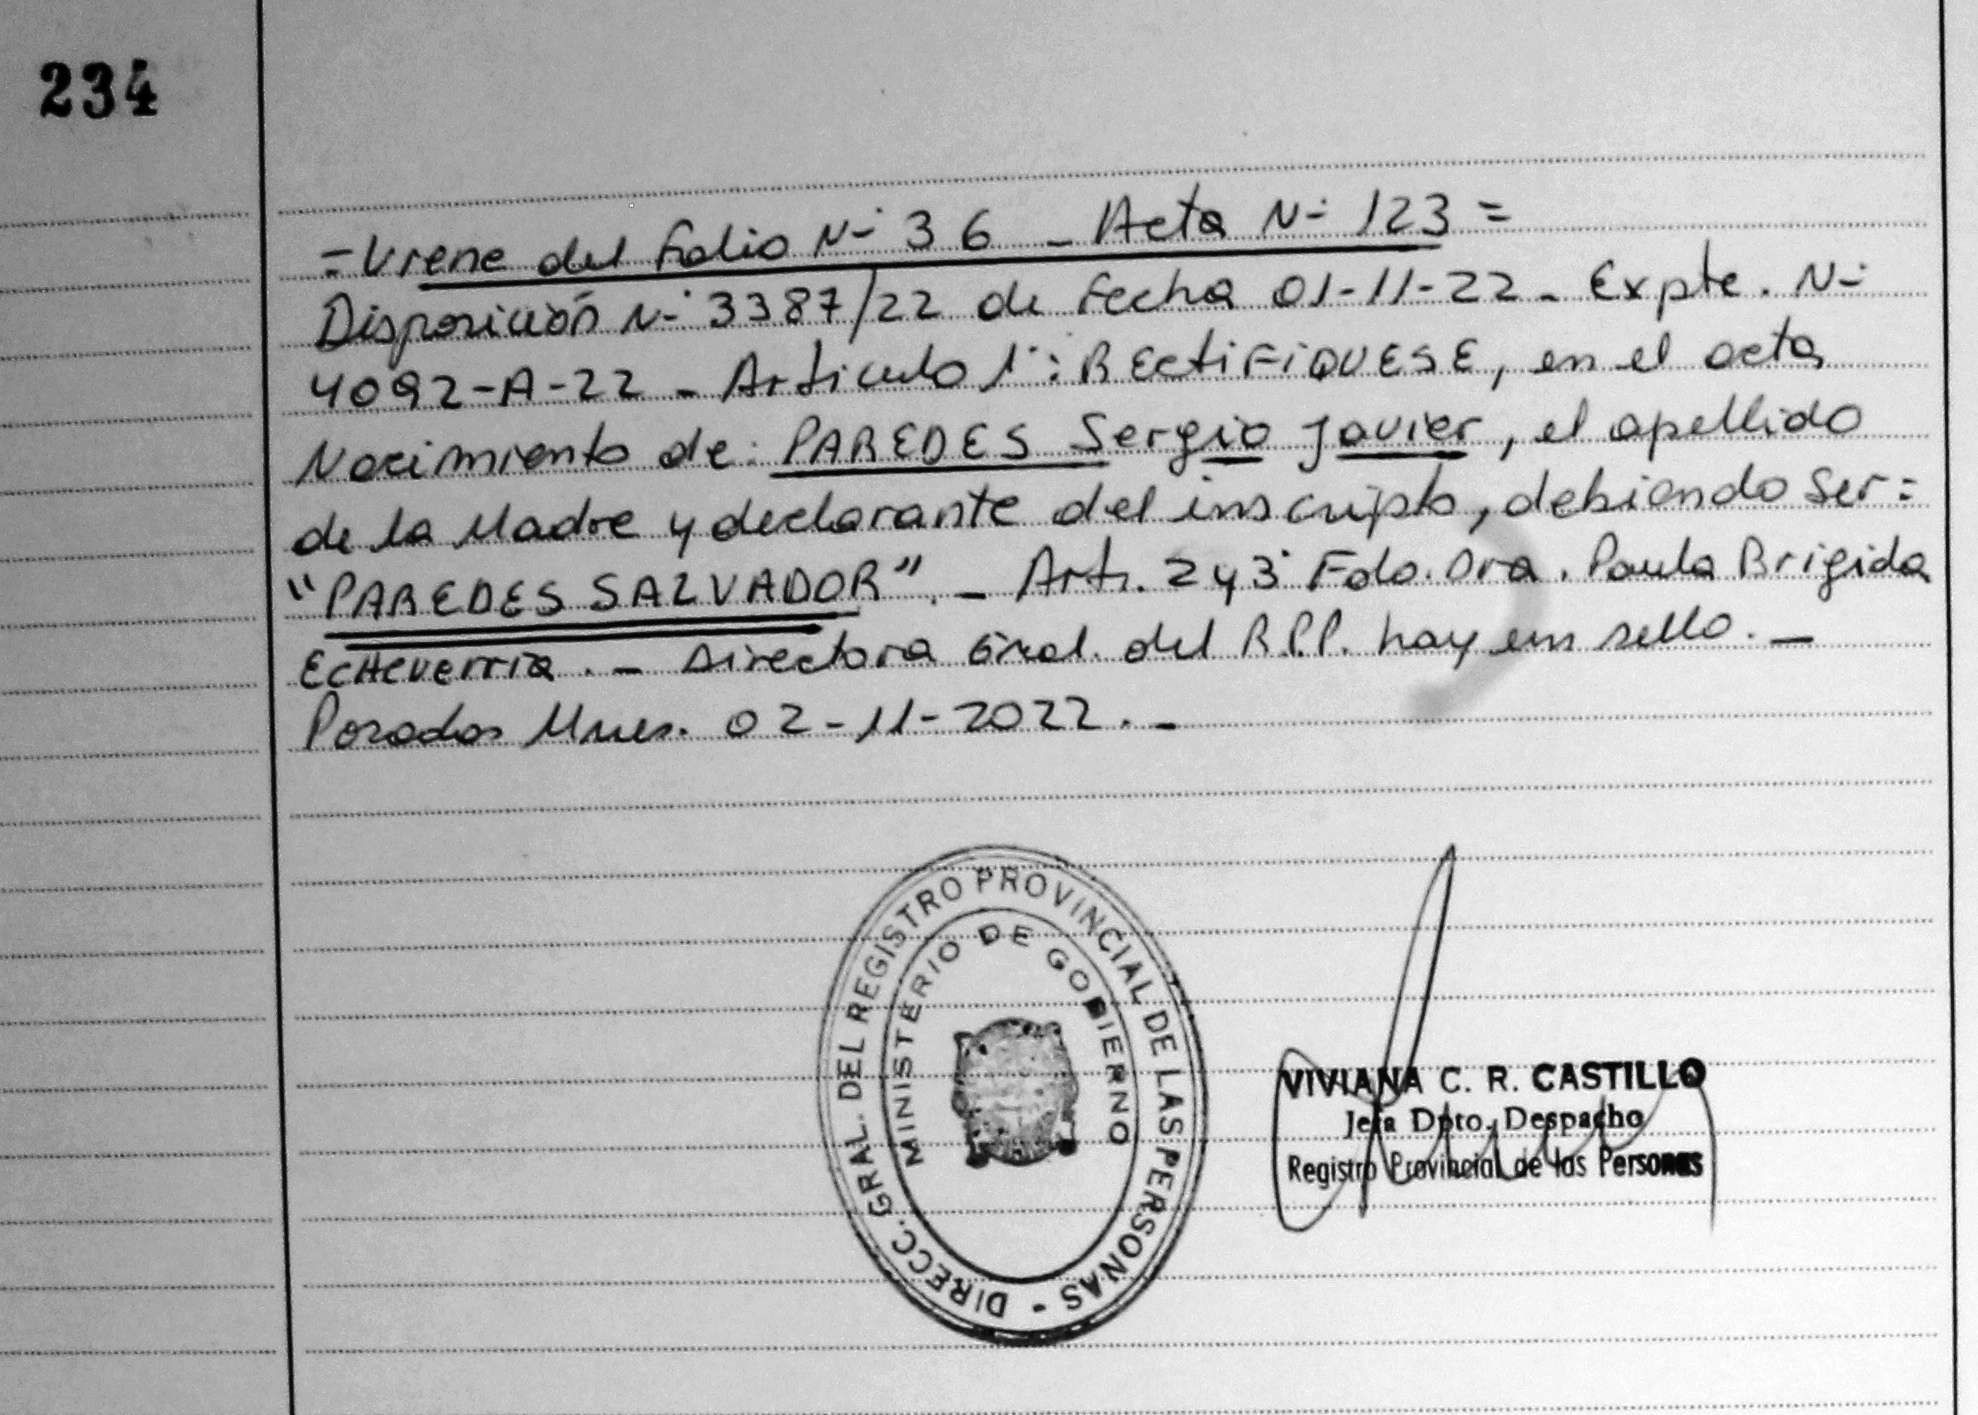 234
=Viene del Folio N- 36 - Acta N- 123=
Disposición N- 3387/22 de Fecha 01-11-22- Expte. N-
4092-A-22 - Articulo 1°: RECTIFIQUESE, en el acta
Nacimiento de: PAREDES Sergio Javier, el apellido
de la Madre y declarante del inscripto, debiendo ser=
"PAREDES SALVADOR".- Art. 2y3° Fdo. Dra. Paula Brigida
Echeverria.- Directora Gral. del R.P.P. hay un sello.-
Posadas Mnes. 02-11-2022.-
DIRECC. GRAL. DEL REGISTRO PROVINCIAL DE LAS PERSONAS -
MINISTERIO DE GOBIERNO
VIVIANA C. R. CASTILLO
Jefa Dpto. Despacho
Registro Provincial de las Personas